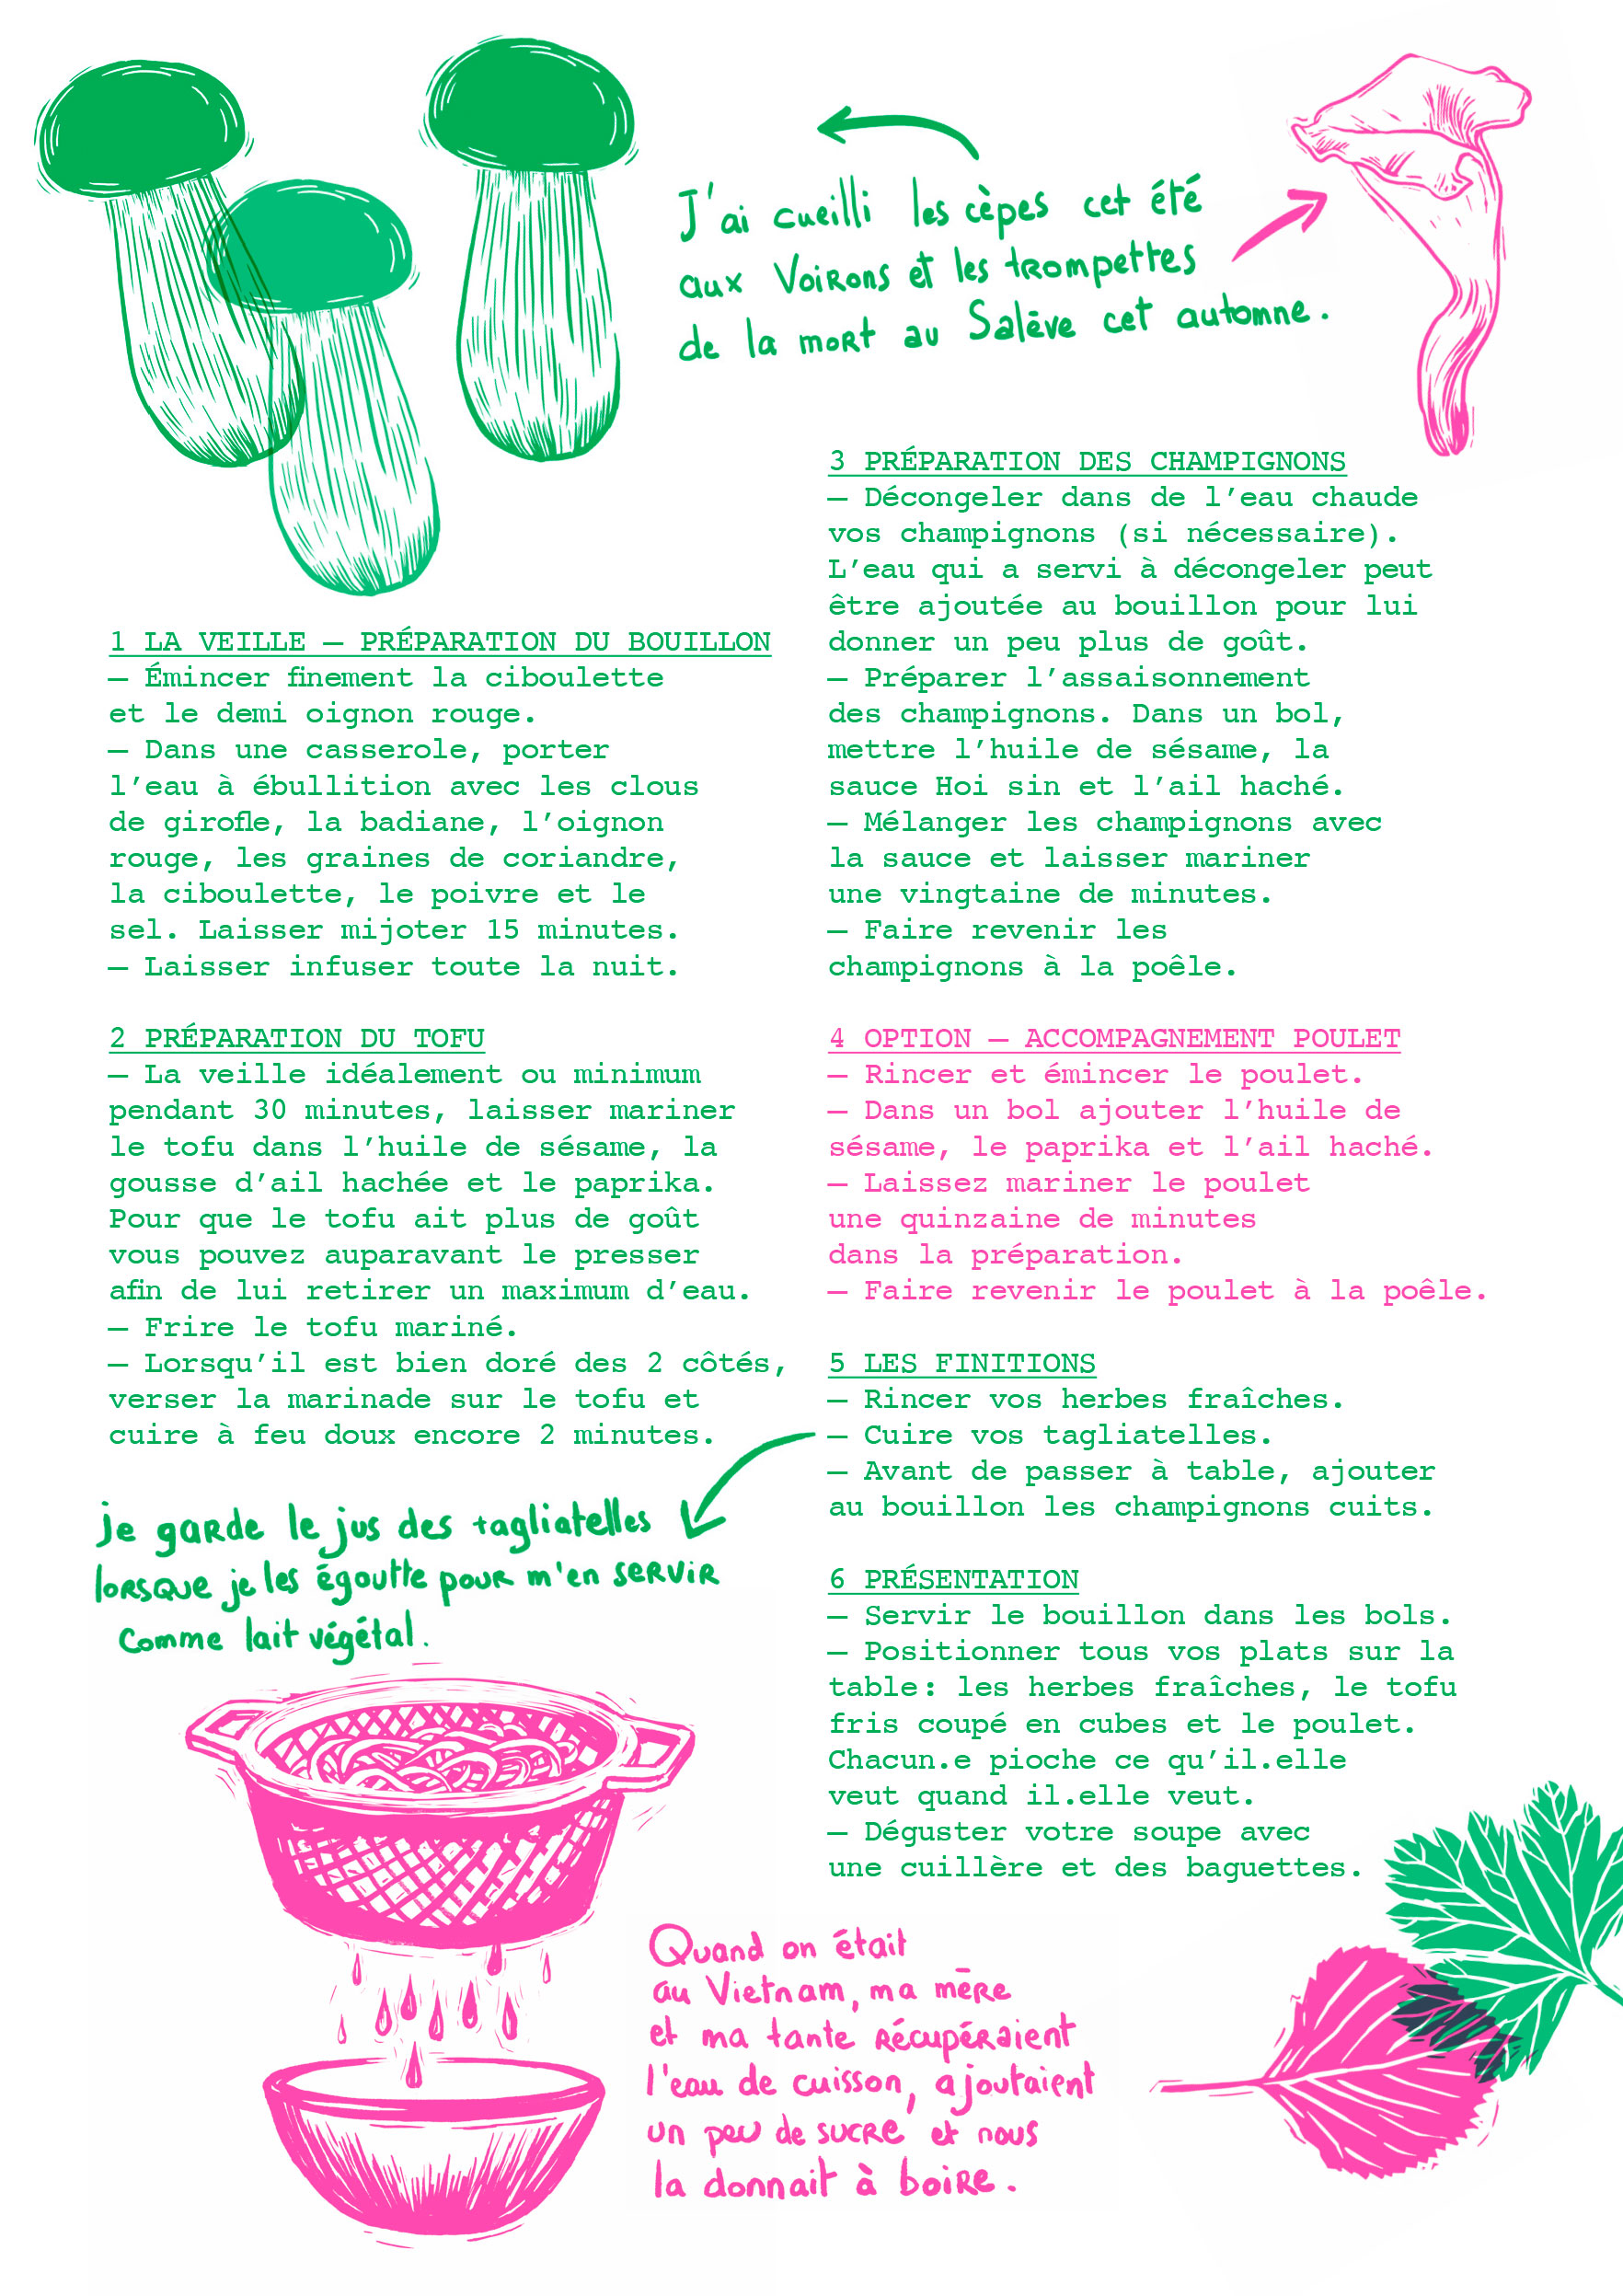 J'ai cueilli les cèpes cet été
aux Voirons et les trompettes
de la mort au Salève cet automne.
1 LA VEILLE – PRÉPARATION DU BOUILLON
– Émincer finement la ciboulette
et le demi oignon rouge.
– Dans une casserole, porter
l'eau à ébullition avec les clous
de girofle, la badiane, l'oignon
rouge, les graines de coriandre,
la ciboulette, le poivre et le
sel. Laisser mijoter 15 minutes.
– Laisser infuser toute la nuit.
2 PRÉPARATION DU TOFU
– La veille idéalement ou minimum
pendant 30 minutes, laisser mariner
le tofu dans l'huile de sésame, la
gousse d'ail hachée et le paprika.
Pour que le tofu ait plus de goût
vous pouvez auparavant le presser
afin de lui retirer un maximum d'eau.
– Frire le tofu mariné.
– Lorsqu'il est bien doré des 2 côtés,
verser la marinade sur le tofu et
cuire à feu doux encore 2 minutes.
je garde le jus des tagliatelles
lorsque je les égoutte pour m'en servir
comme lait végétal.
3 PRÉPARATION DES CHAMPIGNONS
– Décongeler dans de l'eau chaude
vos champignons (si nécessaire).
L'eau qui a servi à décongeler peut
être ajoutée au bouillon pour lui
donner un peu plus de goût.
– Préparer l'assaisonnement
des champignons. Dans un bol,
mettre l'huile de sésame, la
sauce Hoi sin et l'ail haché.
– Mélanger les champignons avec
la sauce et laisser mariner
une vingtaine de minutes.
– Faire revenir les
champignons à la poêle.
4 OPTION – ACCOMPAGNEMENT POULET
– Rincer et émincer le poulet.
– Dans un bol ajouter l'huile de
sésame, le paprika et l'ail haché.
– Laissez mariner le poulet
une quinzaine de minutes
dans la préparation.
– Faire revenir le poulet à la poêle.
5 LES FINITIONS
– Rincer vos herbes fraîches.
– Cuire vos tagliatelles.
– Avant de passer à table, ajouter
au bouillon les champignons cuits.
6 PRÉSENTATION
– Servir le bouillon dans les bols.
– Positionner tous vos plats sur la
table : les herbes fraîches, le tofu
fris coupé en cubes et le poulet.
Chacun.e pioche ce qu'il.elle
veut quand il.elle veut.
– Déguster votre soupe avec
une cuillère et des baguettes.
Quand on était
au Vietnam, ma mère
et ma tante récupéraient
l'eau de cuisson, ajoutaient
un peu de sucre et nous
la donnait à boire.